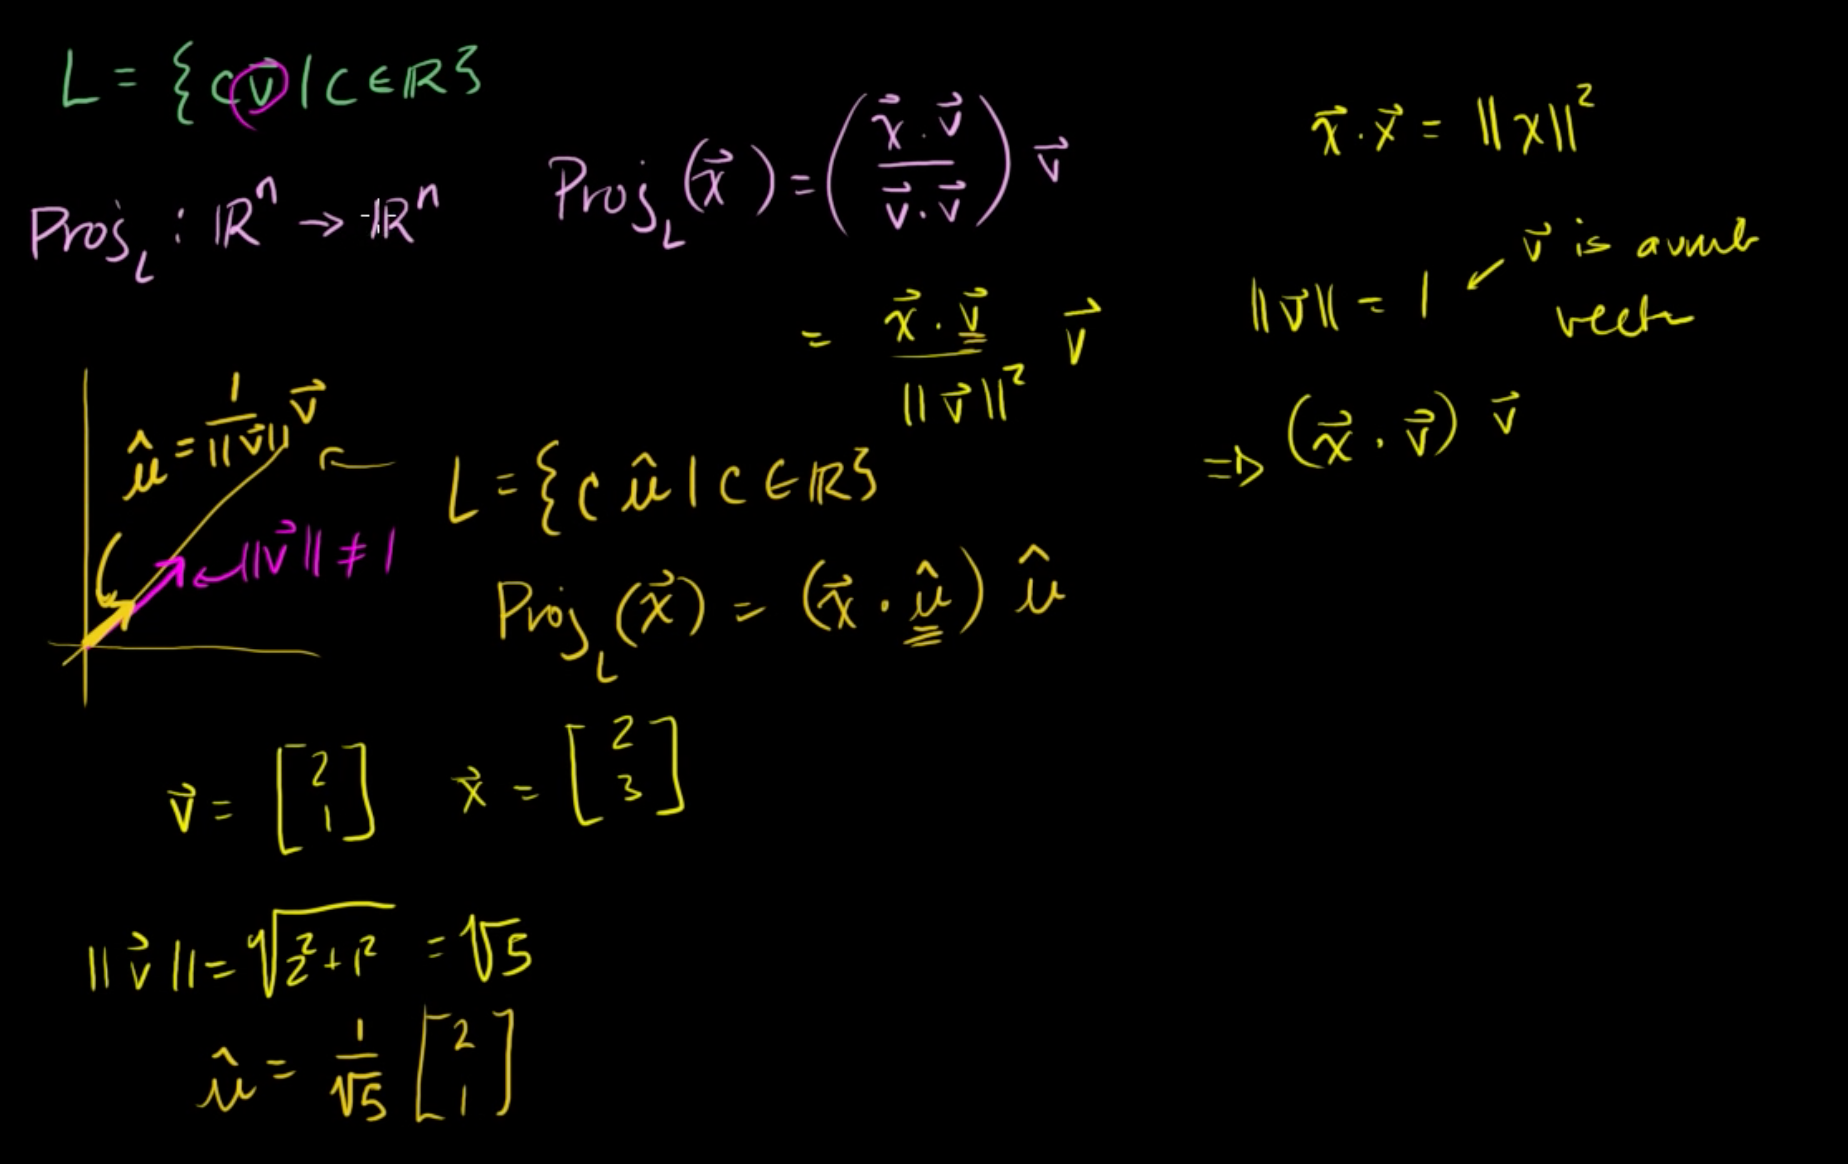 L = {c v⃗ | c ∈ ℝ}
Proj_L : ℝⁿ → ℝⁿ
Proj_L(x⃗) = (x⃗ · v⃗ / v⃗ · v⃗) v⃗
= x⃗ · v⃗ / ||v⃗||² v⃗
x⃗ · x⃗ = ||x||²
||v⃗|| = 1 ← v⃗ is a unit
vector
⇒ (x⃗ · v⃗) v⃗
û = 1/||v⃗|| v⃗ ←
||v⃗|| ≠ 1
L = {c û | c ∈ ℝ}
Proj_L(x⃗) = (x⃗ · û) û
v⃗ = [2 1] x⃗ = [2 3]
||v⃗|| = √(2² + 1²) = √5
û = 1/√5 [2 1]